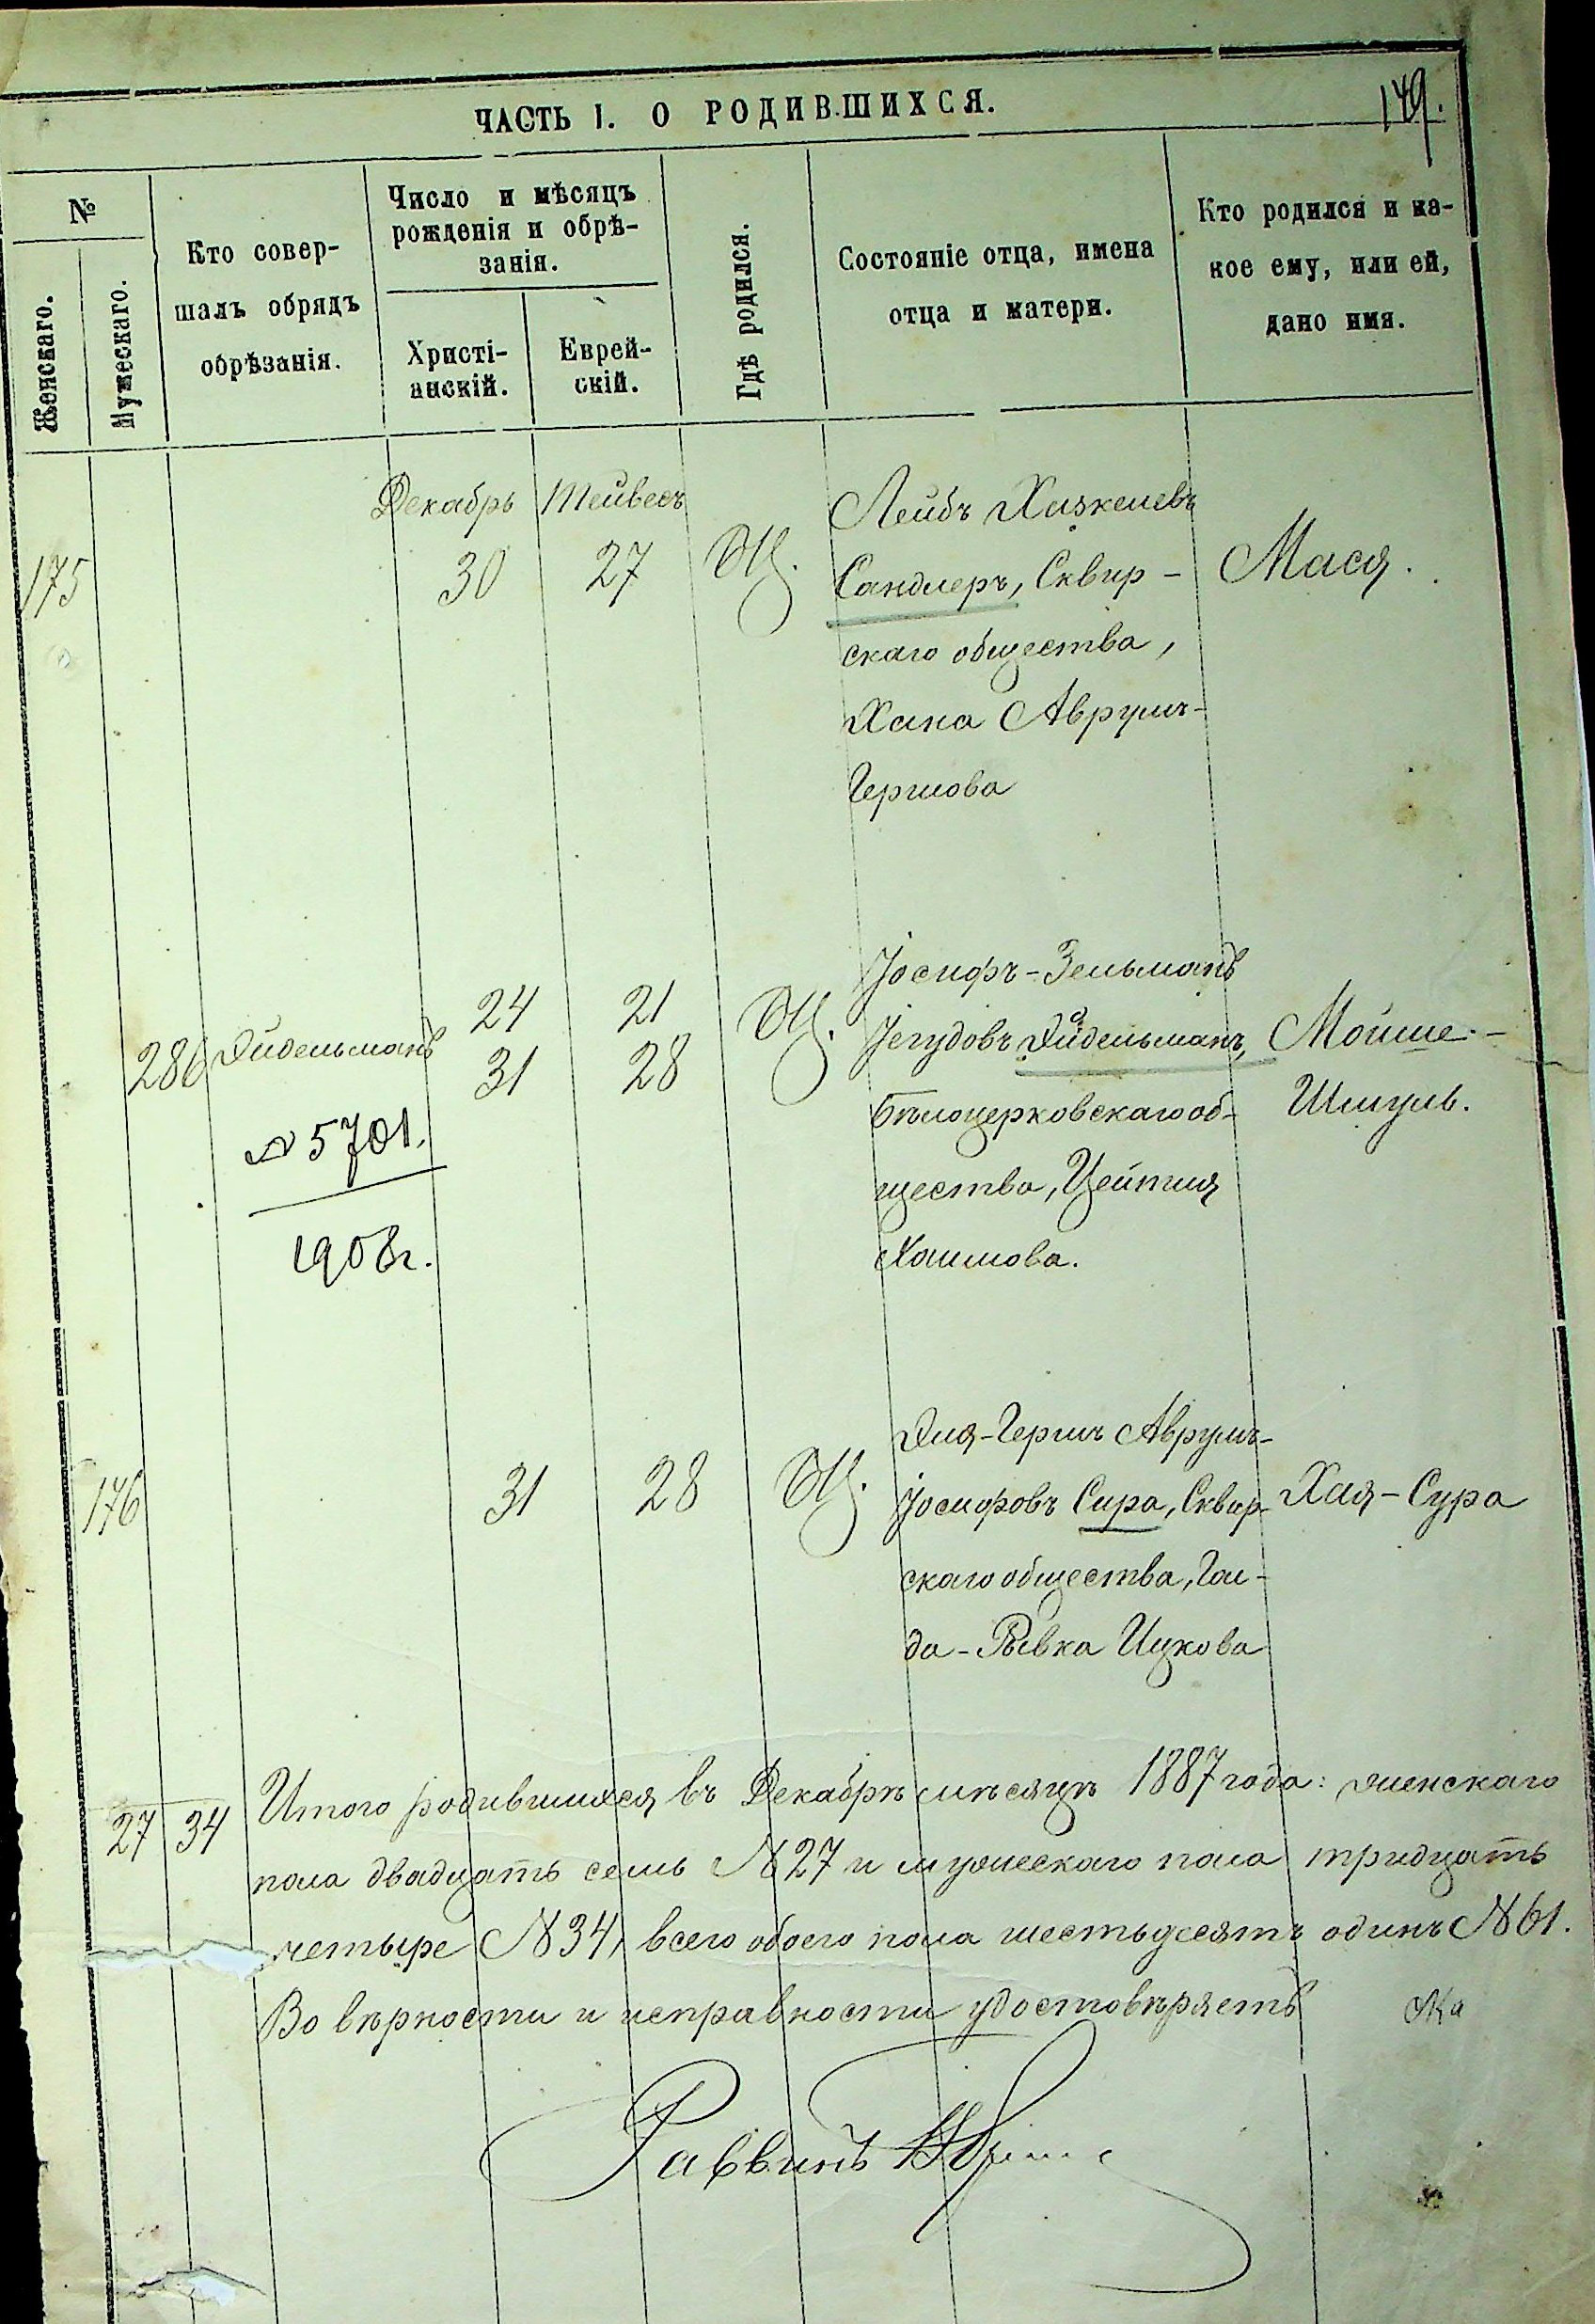 149.
ЧАСТЬ I. О РОДИВШИХСЯ.
№
Женскаго.
Мужескаго.
Кто совер-
шалъ обрядъ
обрѣзанія.
Число и мѣсяцъ
рожденія и обрѣ-
занія.
Христі-
анскій.
Еврей-
скій.
Гдѣ родился.
Состояніе отца, имена
отца и матери.
Кто родился и ка-
кое ему, или ей,
дано имя.
Декабрь Тейвесъ
175 30 27 Лейбъ Хаскелевъ
Сандлеръ, Сквир-
скаго общества,
Хана Аврумъ-
Гершова
Мася.
286 Эйдельманъ 24 21
31 28
№ 5701.
1908г.
Іосифъ-Зельманъ
Іегудовъ Эйдельманъ,
Бѣлоцерковскаго об-
щества, Цейтля
Хаимова.
Мойше-
Шмуль.
176 31 28 Эля-Гершъ Аврумъ-
Іосифовъ Сира, Сквир-
скаго общества, Гол-
да-Рывка Ицкова
Хая-Сура
27 34 Итого родившихся въ Декабрѣ мѣсяцѣ 1887 года: женскаго
пола двадцать семь №27 и мужескаго пола тридцать
четыре №34, всего обоего пола шестьдесятъ одинъ №61.
Во вѣрности и исправности удостовѣряетъ
Раввинъ